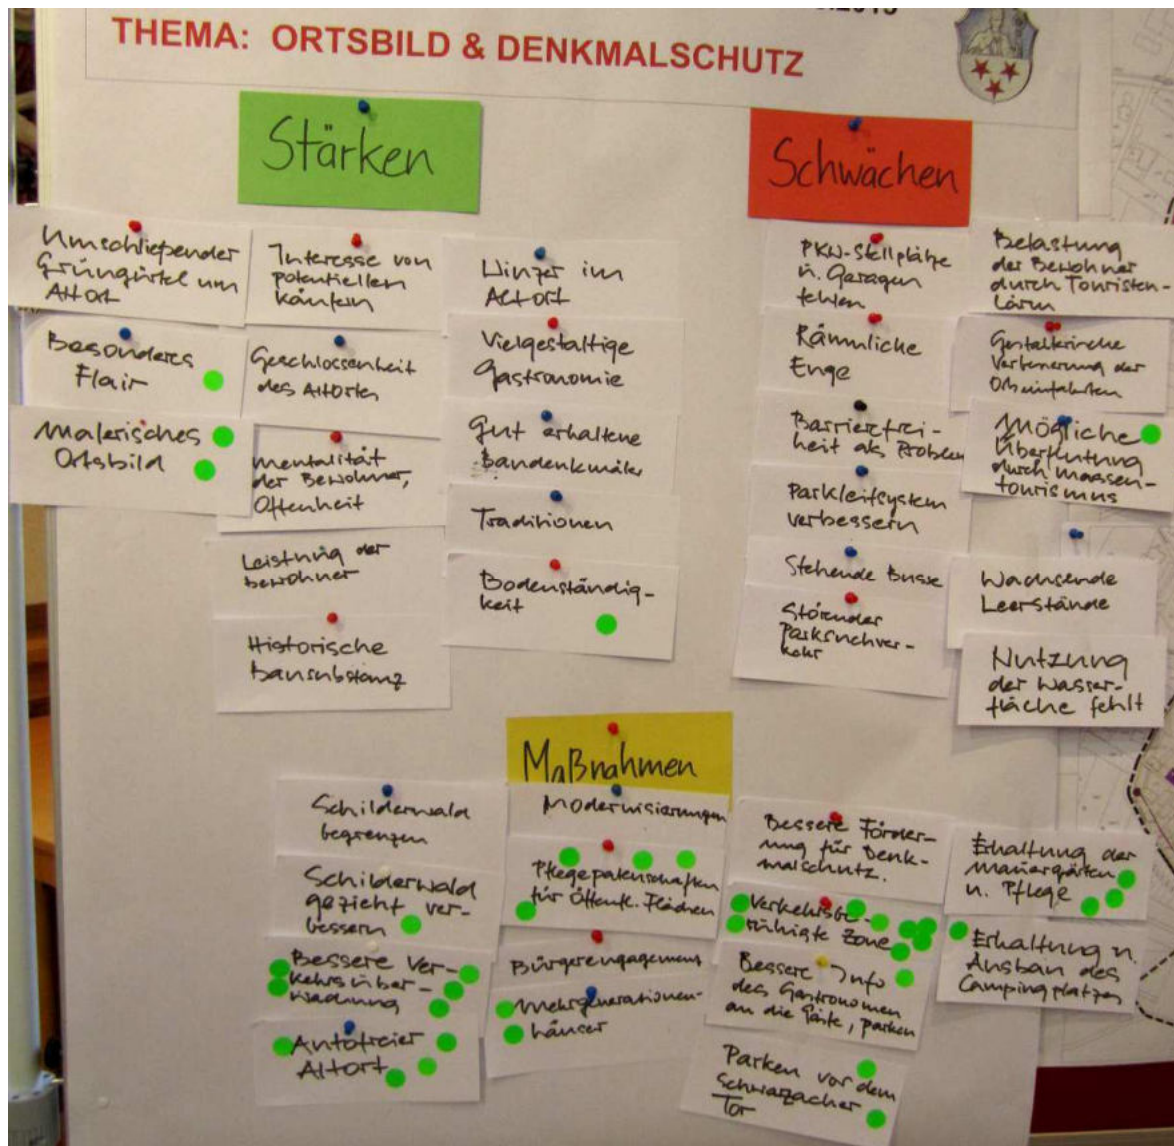 THEMA: ORTSBILD & DENKMALSCHUTZ
Stärken
Umschließender
Grüngürtel um
Altort
Besonderes
Flair
Malerisches
Ortsbild
Interesse von
potentiellen
Käufern
Geschlossenheit
des Altortes
Mentalität
der Bewohner,
Offenheit
Leistung der
Bewohner
Historische
Bausubstanz
Winzer im
Altort
Vielgestaltige
Gastronomie
Gut erhaltene
Baudenkmäler
Traditionen
Bodenständig-
keit
Schwächen
PKW-Stellplätze
u. Garagen
fehlen
Räumliche
Enge
Barrierefrei-
heit als Problem
Parkleitsystem
verbessern
Stehende Busse
Störender
Parksuchver-
kehr
Belastung
der Bewohner
durch Touristen-
lärm
Gestalterische
Verbesserung der
Ortseinfahrten
Mögliche
Überflutung
durch Massen-
tourismus
Wachsende
Leerstände
Nutzung
der Wasser-
fläche fehlt
Maßnahmen
Schilderwald
begrenzen
Schilderwald
gezielt ver-
bessern
Bessere Ver-
kehrsüber-
wachung
Autofreier
Altort
Modernisierungen
Pflegepatenschaften
für öffentl. Flächen
Bürgerengagement
Mehrgenerationen-
häuser
Bessere Förder-
ung für Denk-
malschutz.
Verkehrsbe-
ruhigte Zone
Bessere Info
des Gastronomen
an die Gäste, parken
Parken vor dem
Schwarzacher
Tor
Erhaltung der
Mauergärten
u. Pflege
Erhaltung u.
Ausbau des
Campingplatzes